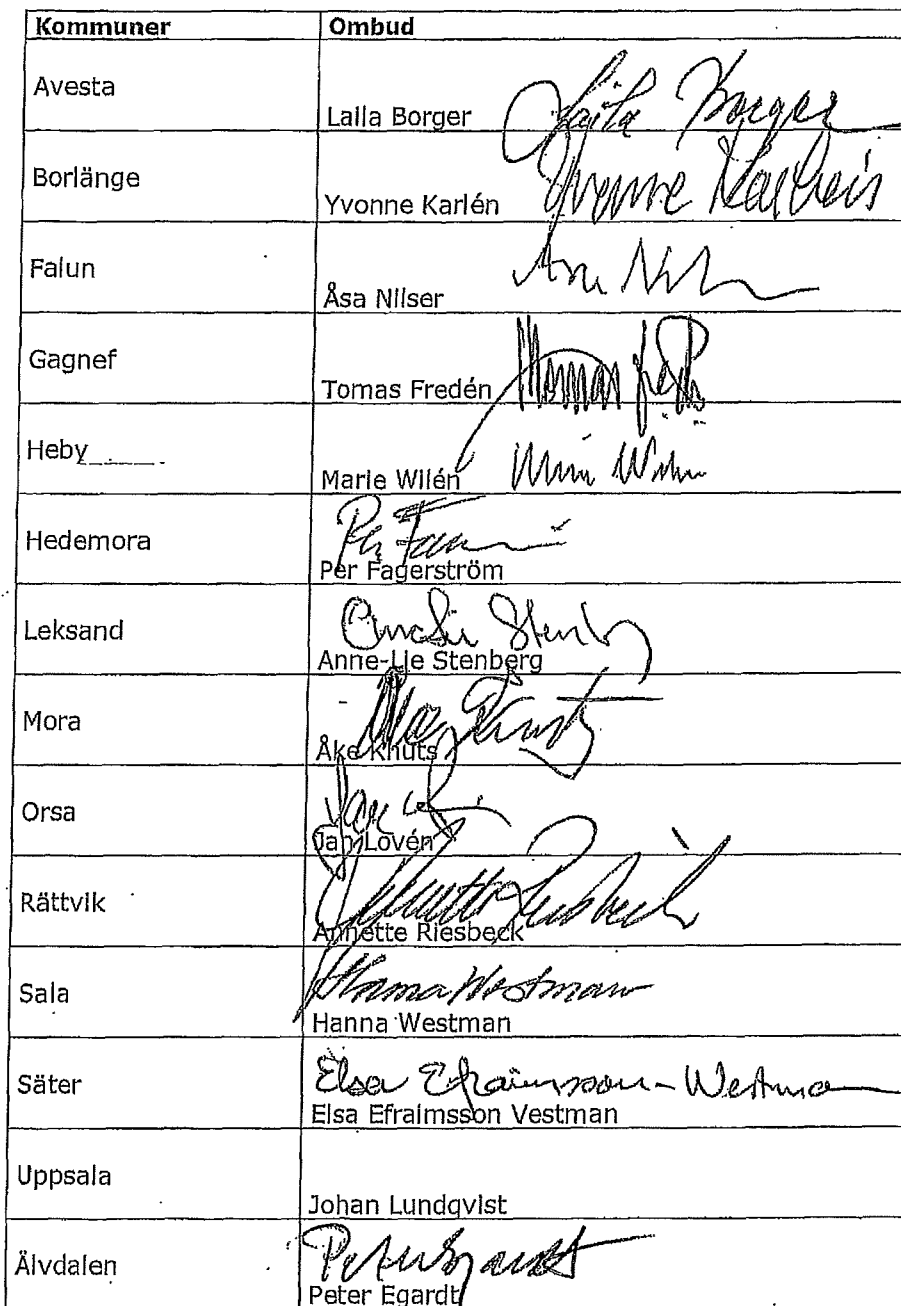 Kommuner Ombud
Avesta
Laila Borger Laila Borger
Borlänge
Yvonne Karlén Yvonne
Falun
Åsa Nilser
Gagnef
Tomas Fredén
Heby
Marie Wilén
Hedemora
Per
Per Fagerström
Leksand
Anne-Lie Stenberg
Mora
Åke Knuts
Orsa
Jan
Jan Lovén
Rättvik
Annette Riesbeck
Annette Riesbeck
Sala
Hanna Westman
Hanna Westman
Säter
Elsa Efraimsson-Westman
Elsa Efraimsson Vestman
Uppsala
Johan Lundqvist
Älvdalen
Peter Egardt
Peter Egardt